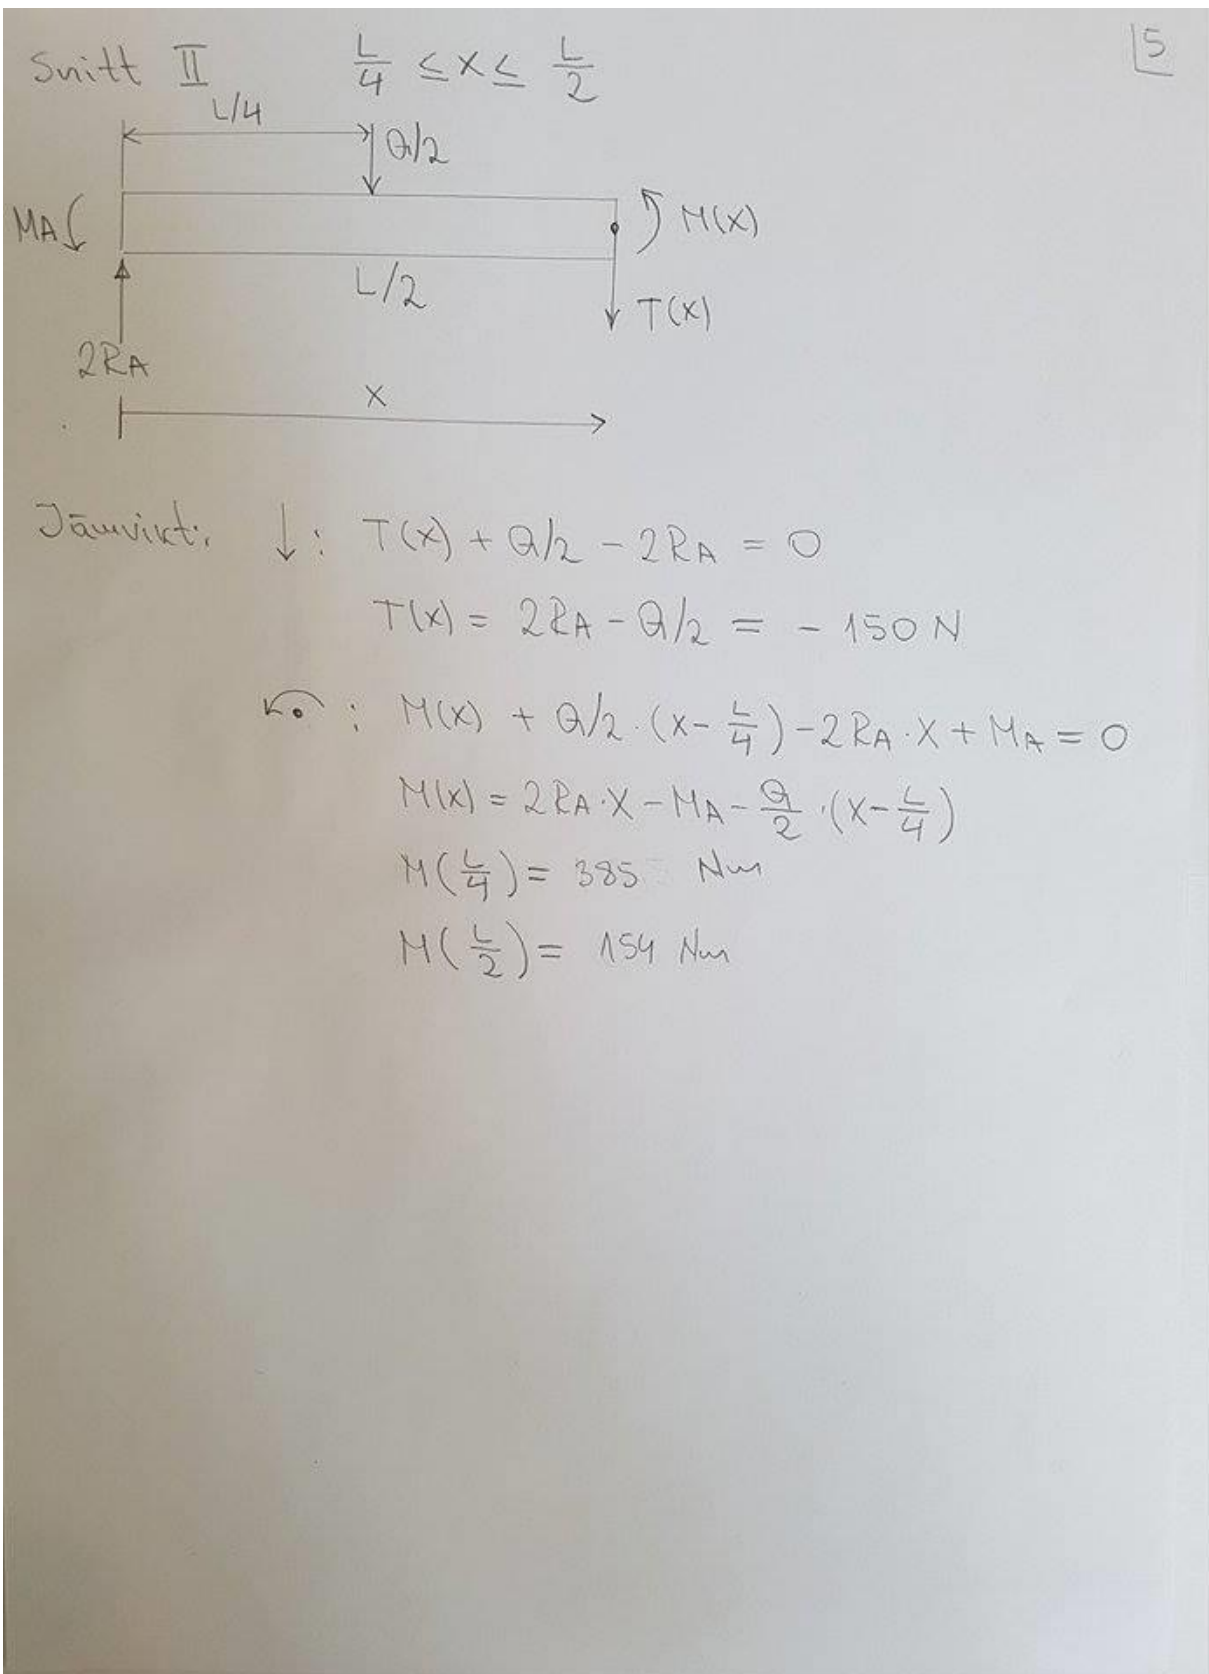 Snitt II L/4 ≤ x ≤ L/2 5
L/4
Q/2
MA M(x)
L/2
T(x)
2RA
x
Jämvikt: ↓: T(x) + Q/2 - 2RA = 0
T(x) = 2RA - Q/2 = - 150 N
: M(x) + Q/2 · (x - L/4) - 2RA · x + MA = 0
M(x) = 2RA · x - MA - Q/2 · (x - L/4)
M(L/4) = 385 Nm
M(L/2) = 154 Nm